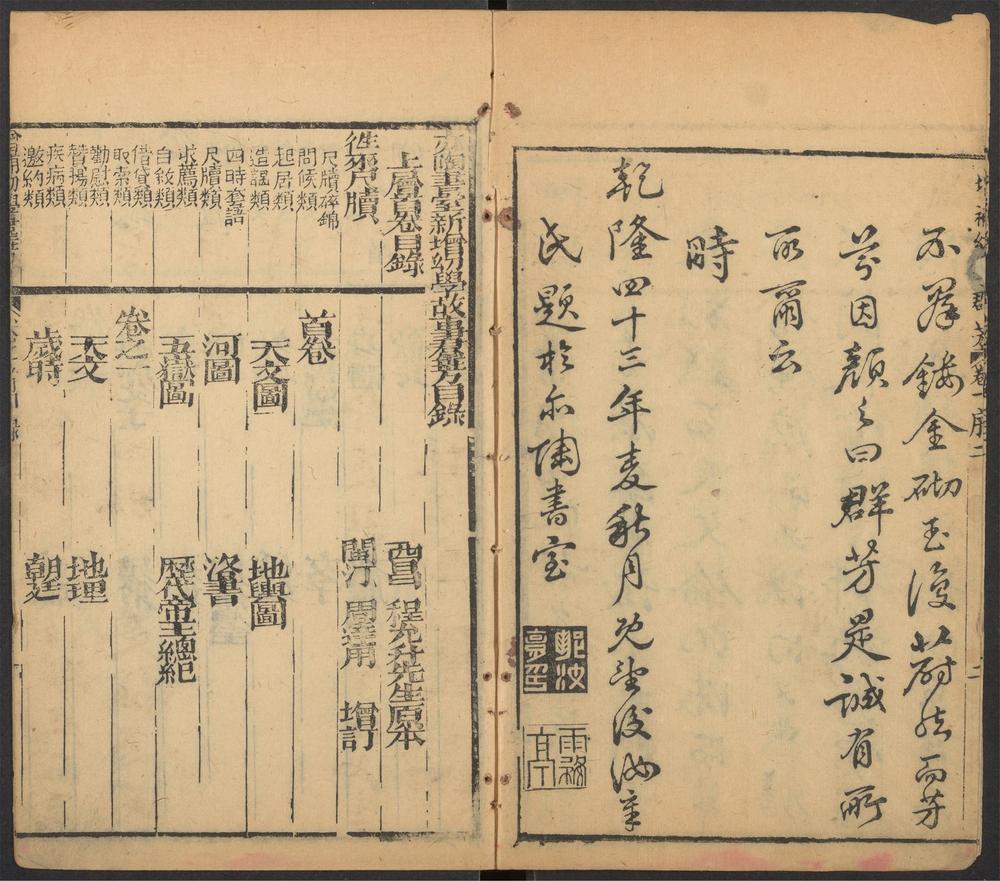 不殊鏤金砌玉復蔚然而芳
芬因顏之曰群芳是誠有所
取爾云
時
乾隆四十三年麦秋月既望後汝亭
氏題於亦陶書室
亦陶書室新增幼學故事群芳目錄
上層首卷目錄
徃來尺牘
尺牘碎錦
問候類
起居類
造謁類
四時套語
尺牘類
求薦類
自敘類
借貸類
取索類
勸慰類
贊揚類
疾病類
邀約類
西昌 程允升先生原本
閩汀 周達用 增訂
首卷
天文圖 地輿圖
河圖 洛書
五嶽圖 歷代帝王總紀
卷之一
天文 地理
歲時 朝廷